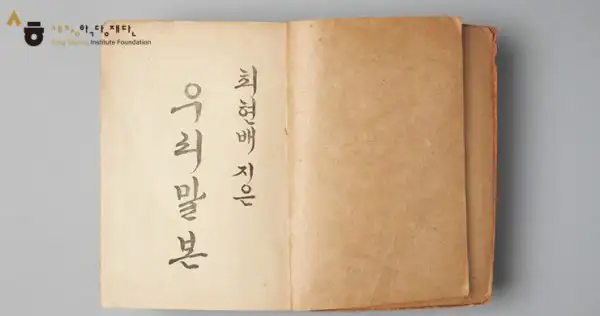 세종학당재단
King Sejong Institute Foundation
최현배 지은
우리말본